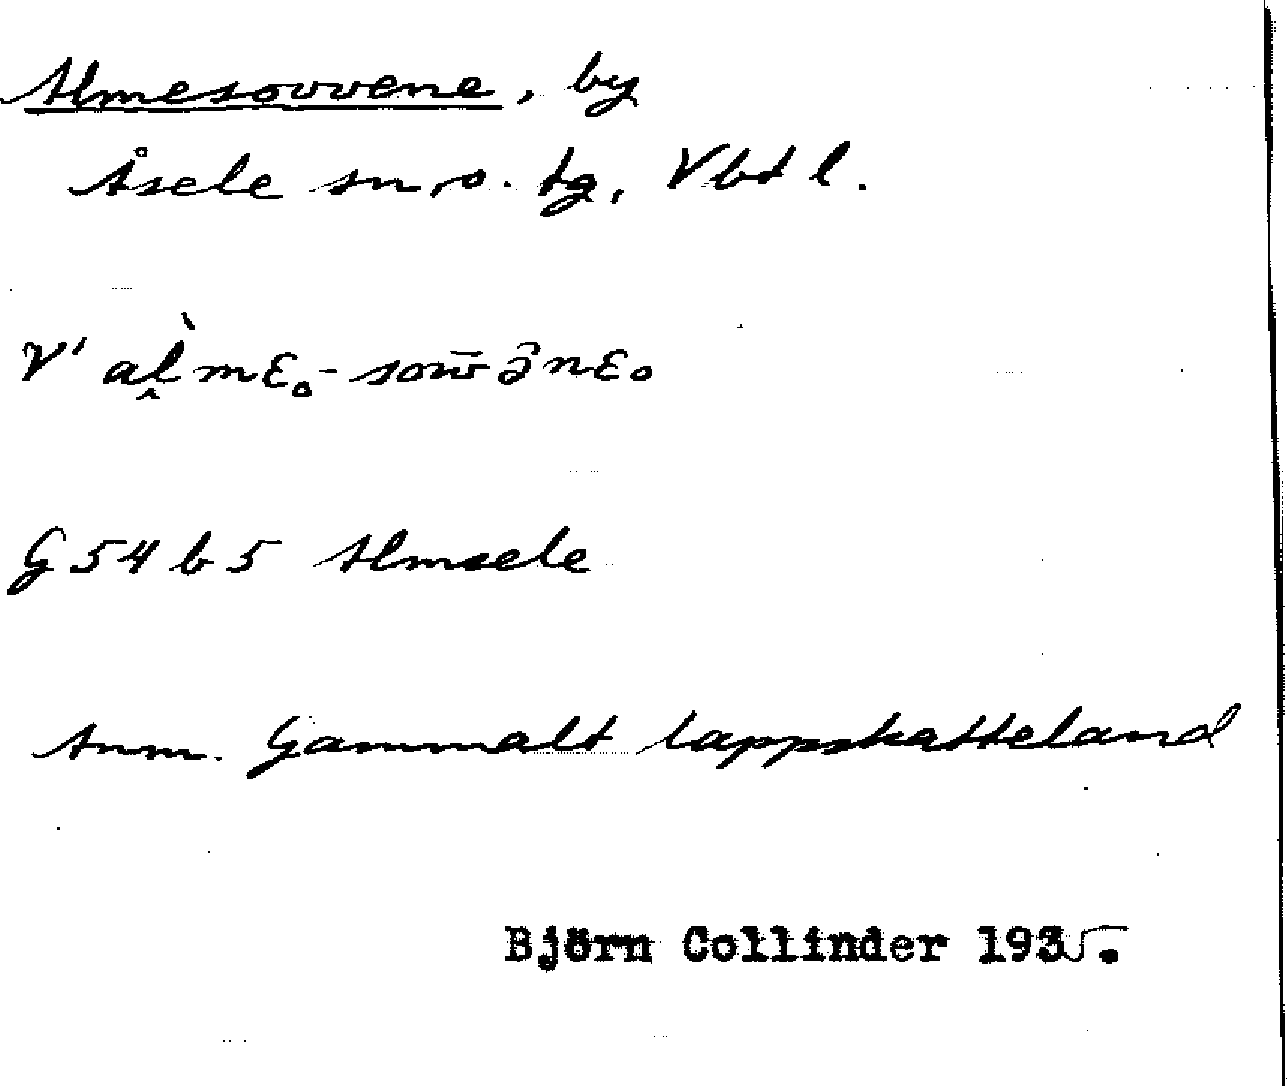 Almesovvene, by
Åsele sn, o. tg, Vbtl.
V' al̬̀mɛ₀-sow̄ən̂ɛ₀
G 54 b 5 Almsele
Anm. Gammalt lappskatteland
Björn Collinder 1935.